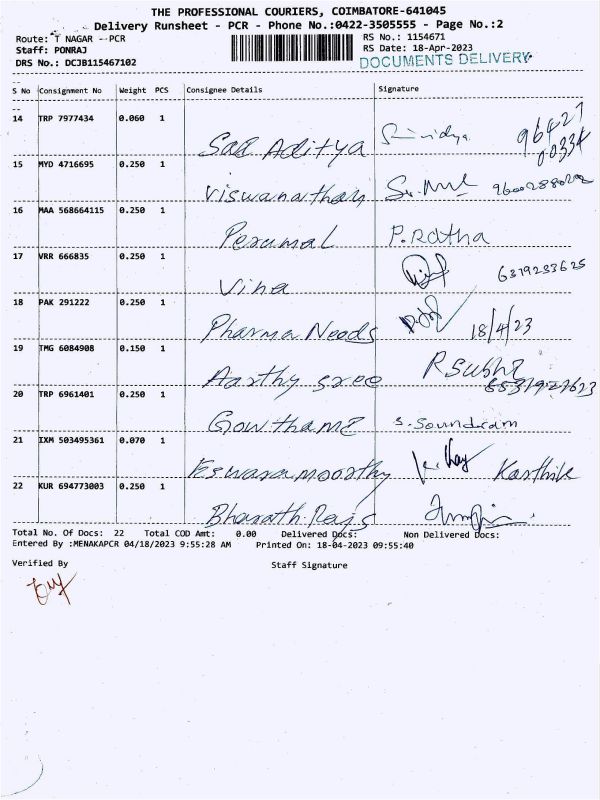 THE PROFESSIONAL COURIERS, COIMBATORE-641045
Delivery Runsheet - PCR - Phone No.:0422-3505555 - Page No.:2
Route: T NAGAR - PCR RS No.: 1154671
Staff: PONRAJ RS Date: 18-Apr-2023
DRS No.: DCJB115467102 DOCUMENTS DELIVERY
S No Consignment No Weight PCS Consignee Details Signature
14 TRP 7977434 0.060 1 Sad Aditya Srividya 96427 00334
15 MYD 4716695 0.250 1 Viswanathan
16 MAA 568664115 0.250 1 Perumal P. Ratha
17 VRR 666835 0.250 1 Viha 6319233625
18 PAK 291222 0.250 1 Pharma Needs 18/4/23
19 TMG 6084908 0.150 1 Aarthy sree R Subhz
20 TRP 6961401 0.250 1 Gowthame S. Soundram
21 IXM 503495361 0.070 1 Eswaramoorthy Karthik
22 KUR 694773003 0.250 1 Bharath Rajs
Total No. Of Docs: 22 Total COD Amt: 0.00 Delivered Docs: Non Delivered Docs:
Entered By :MENAKAPCR 04/18/2023 9:55:28 AM Printed On: 18-04-2023 09:55:40
Verified By Staff Signature